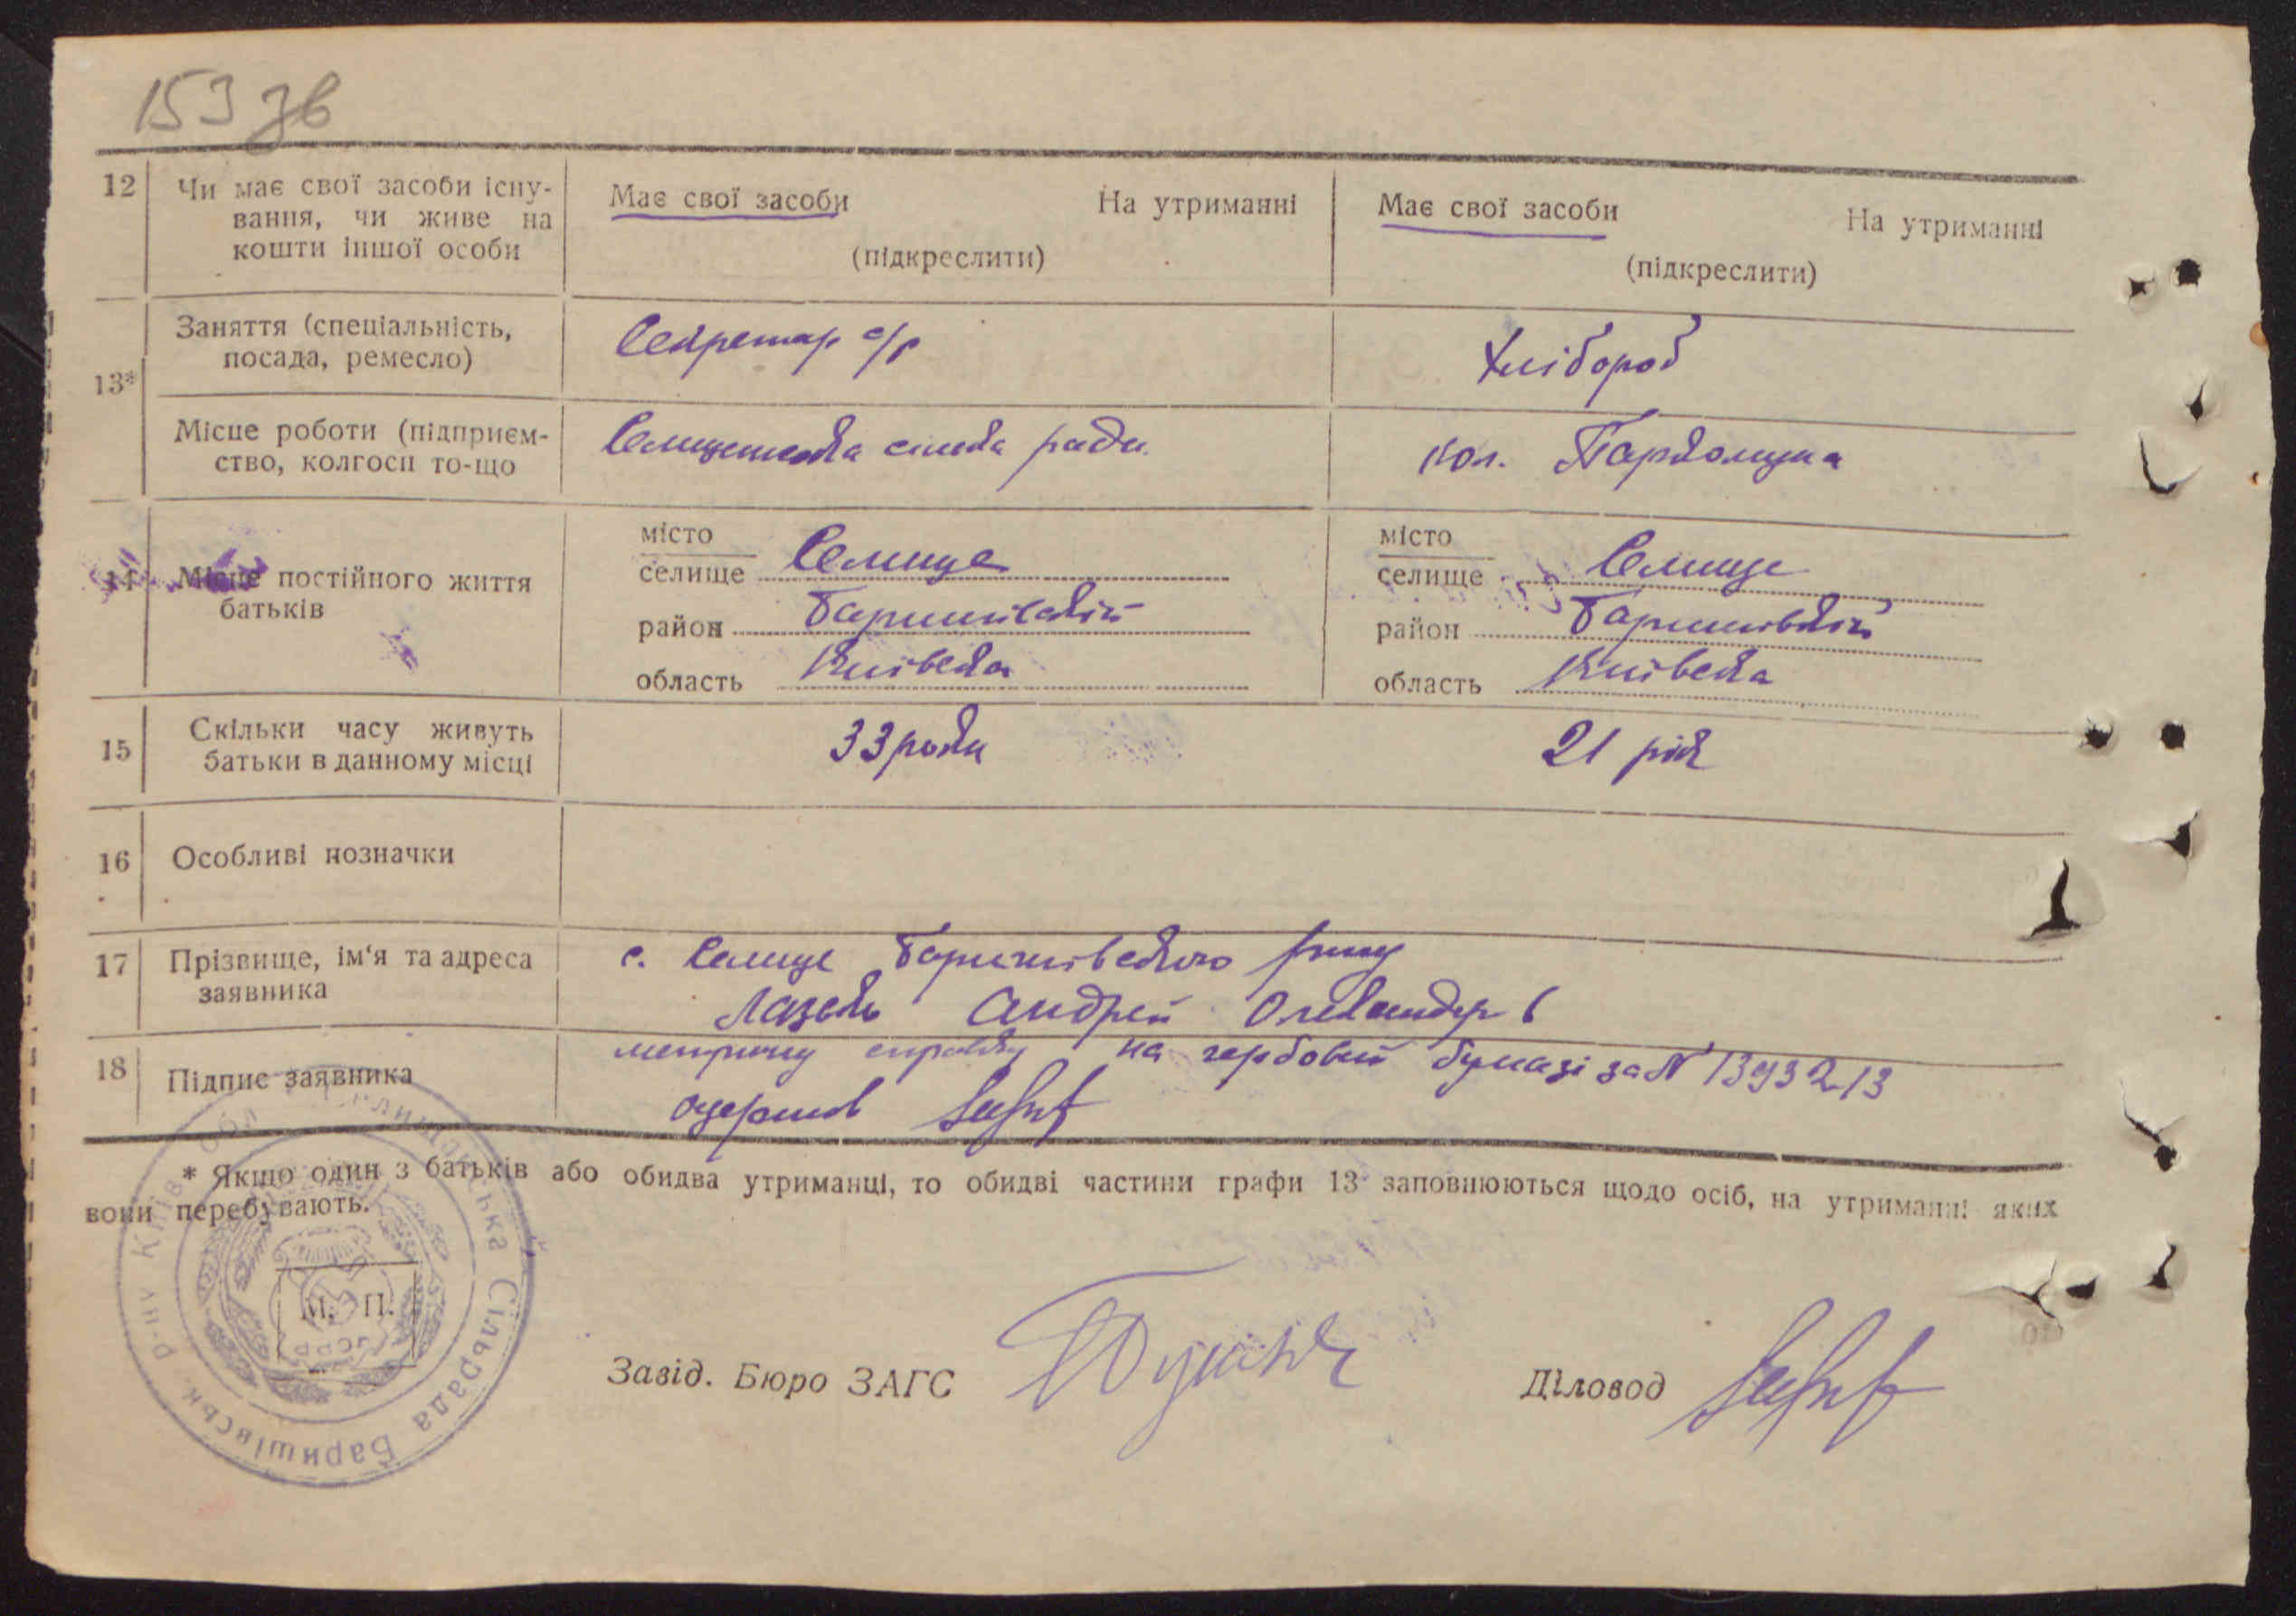 153 зв
12 Чи має свої засоби існу-
вання, чи живе на
кошти іншої особи
Має свої засоби На утриманні
(підкреслити)
Має свої засоби На утриманні
(підкреслити)
13* Заняття (спеціальність,
посада, ремесло)
Секретар с/р
Хлібороб
Місце роботи (підприєм-
ство, колгосп то-що
сільска рада
кол.
14 Місце постійного життя
батьків
місто
селище Селище
район Баришівский
область Київска
місто
селище Селище
район Баришівский
область Київска
15 Скільки часу живуть
батьки в данному місці
33 роки
21 рік
16 Особливі позначки
17 Прізвище, ім'я та адреса
заявника
с. Селище Баришівского р-ну
Андрей
18 Підпис заявника
метричну справку на гербовій бумазі за № 1393213
одержав
* Якщо один з батьків або обидва утриманці, то обидві частини графи 13 заповнюються щодо осіб, на утриманні яких
вони перебувають.
М. П.
УСРР
Сільрада Баришівськ. р-ну Київ. обл.
Завід. Бюро ЗАГС
Діловод